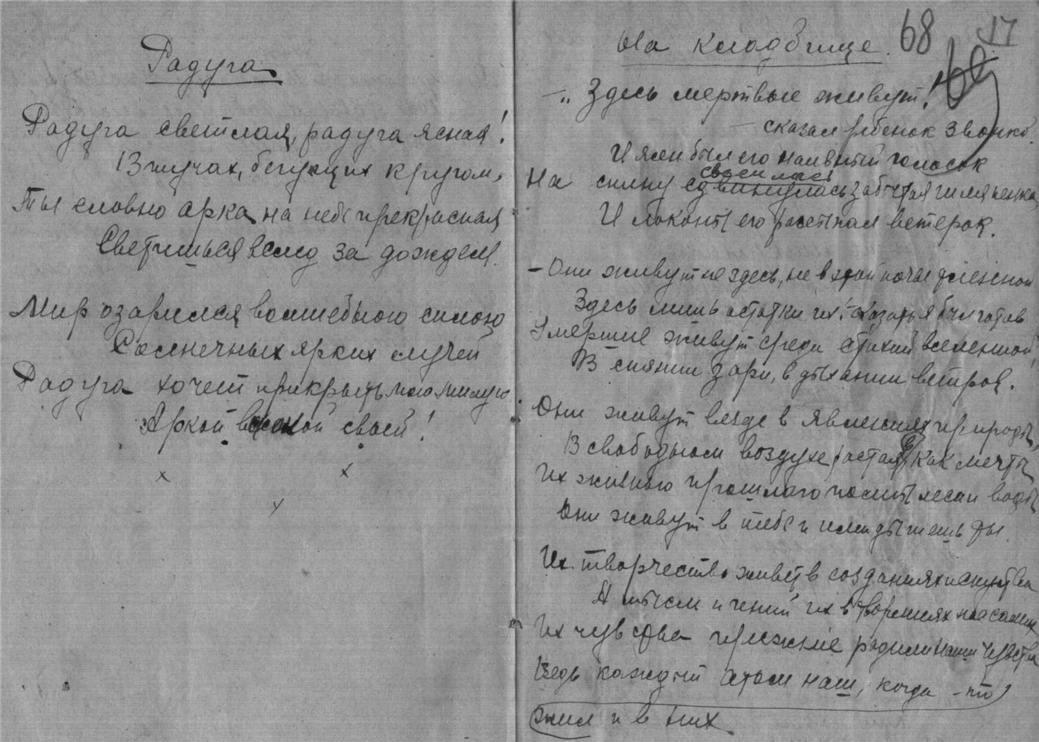 Радуга
Радуга светлая, радуга ясная!
В лучах, бегущих кругом,
Ты словно арка на небе прекрасная
Светишься вслед за дождем.
Мир озарился волшебною силою
Солнечных ярких лучей
Радуга хочет прикрыть милую
Аркой своей!
х х
х
На кладбище
68 17
— „Здесь мертвые живут!
— сказал ребенок звонко
И был его наивный голосок
свесилась
На спину сдвинулась забытая
И локоны его рассыпал ветерок.
— Они живут не здесь, не в этой почве
Здесь лишь остатки их
Умершие живут среди стихий вселенной
В сиянии зари, в дыхании ветров.
Они живут везде в явлениях природы,
В свободном воздухе, растая, как мечты
Их жизнью прошлого полны леса и воды
Они живут в тебе и ими дышешь ты.
Их творчество живет в созданиях искусства
А мысли и гений их в творениях
Их чувства прежние родили наши чувства
Ведь каждый атом наш, когда-то
жил и в них